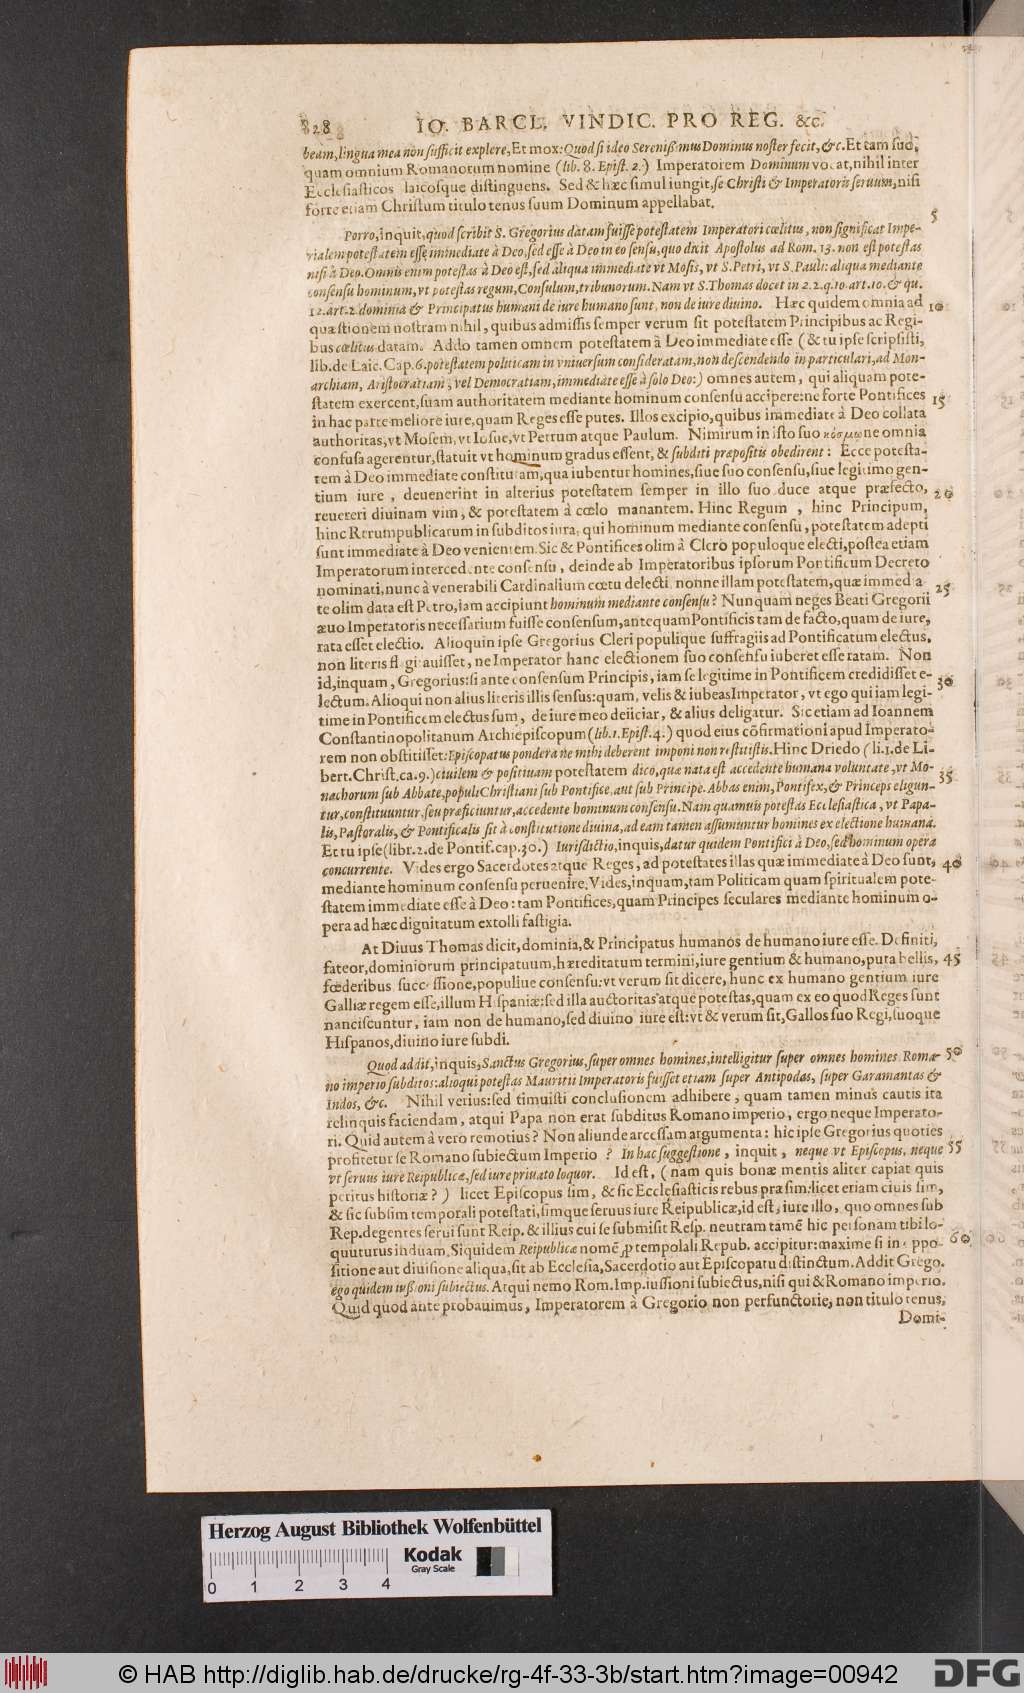 828 IO. BARCL. VINDIC. PRO REG. &c.
beam, lingua mea non sufficit explere, Et mox: Quod si ideo Sereniss:mus Dominus noster fecit, &c. Et tam suo,
quam omnium Romanorum nomine (lib. 8. Epist. 2.) Imperatorem Dominum vocat, nihil inter
Ecclesiasticos laicosque distinguens. Sed & hæc simul iungit, se Christi & Imperatoris seruum, nisi
forte etiam Christum titulo tenus suum Dominum appellabat.
5
Porro, inquit, quod scribit S. Gregorius datam fuisse potestatem Imperatori cœlitus, non significat Impe-
rialem potestatem esse immediate à Deo, sed esse à Deo in eo sensu, quo dicit Apostolus ad Rom. 13. non est potestas
nisi à Deo. Omnis enim potestas à Deo est, sed aliqua immediate vt Mosis, vt S. Petri, vt S. Pauli: aliqua mediante
consensu hominum, vt potestas regum, Consulum, tribunorum. Nam vt S. Thomas docet in 2.2.q.10.art.10. & qu.
12.art.2 dominia & Principatus humani de iure humano sunt, non de iure diuino. Hæc quidem omnia ad 10
quæstionem nostram nihil, quibus admissis semper verum sit potestatem Principibus ac Regi-
bus cœlitus datam. Addo tamen omnem potestatem à Deo immediate esse (& tu ipse scripsisti,
lib. de Laic. Cap. 6. potestatem politicam in vniuersum consideratam, non descendendo in particulari, ad Mon-
archiam, Aristocratiam, vel Democratiam, immediate esse à solo Deo:) omnes autem, qui aliquam pote-
statem exercent, suam authoritatem mediante hominum consensu accipere: ne forte Pontifices 15
in hac parte meliore iure, quam Reges esse putes. Illos excipio, quibus immediate à Deo collata
authoritas, vt Mosem, vt Iosue, vt Petrum atque Paulum. Nimirum in isto suo κόσμῳ ne omnia
confusa agerentur, statuit vt hominum gradus essent, & subditi præpositis obedirent: Ecce potesta-
tem à Deo immediate constitutam, qua iubentur homines, siue suo consensu, siue legitimo gen-
tium iure, deuenerint in alterius potestatem semper in illo suo duce atque præfecto, 20
reuereri diuinam vim, & potestatem à cœlo manantem. Hinc Regum, hinc Principum,
hinc Rerumpublicarum in subditos iura, qui hominum mediante consensu, potestatem adepti
sunt immediate à Deo venientem. Sic & Pontifices olim à Clero populoque electi, postea etiam
Imperatorum intercedente consensu, deinde ab Imperatoribus ipsorum Pontificum Decreto
nominati, nunc à venerabili Cardinalium cœtu delecti nonne illam potestatem, quæ immedia- 25
te olim data est Petro, iam accipiunt hominum mediante consensu? Nunquam neges Beati Gregorii
æuo Imperatoris necessarium fuisse consensum, antequam Pontificis tam de facto, quam de iure,
rata esset electio. Alioquin ipse Gregorius Cleri populique suffragiis ad Pontificatum electus,
non literis flagitauisset, ne Imperator hanc electionem suo consensu iuberet esse ratam. Non
id, inquam, Gregorius: si ante consensum Principis, iam se legitime in Pontificem credidisset e- 30
lectum. Alioqui non alius literis illis sensus: quam, velis & iubeas Imperator, vt ego qui iam legi-
time in Pontificem electus sum, de iure meo deiiciar, & alius deligatur. Sic etiam ad Ioannem
Constantinopolitanum Archiepiscopum (lib. 1. Epist. 4.) quod eius cõfirmationi apud Imperato-
rem non obstitisset: Episcopatus pondera ne mihi deberent imponi non restitistis. Hinc Driedo (li. 1. de Li-
bert. Christ. ca. 9.) ciuilem & positiuam potestatem dico, quæ nata est accedente humana voluntate, vt Mo- 35
nachorum sub Abbate, populi Christiani sub Pontifice, aut sub Principe. Abbas enim, Pontifex, & Princeps eligun-
tur, constituuntur, seu præficiuntur, accedente hominum consensu. Nam quamuis potestas Ecclesiastica, vt Papa-
lis, Pastoralis, & Pontificalis sit à constitutione diuina, ad eam tamen assumuntur homines ex electione humana.
Et tu ipse (libr. 2. de Pontif. cap. 30.) Iurisdictio, inquis, datur quidem Pontifici à Deo, sed hominum opera
concurrente. Vides ergo Sacerdotes atque Reges, ad potestates illas quæ immediate à Deo sunt, 40
mediante hominum consensu peruenire. Vides, inquam, tam Politicam quam spiritualem pote-
statem immediate esse à Deo: tam Pontifices, quam Principes seculares mediante hominum o-
pera ad hæc dignitatum extolli fastigia.
At Diuus Thomas dicit, dominia, & Principatus humanos de humano iure esse. Definiti,
fateor, dominiorum principatuum, hæreditatum termini, iure gentium & humano, puta bellis, 45
fœderibus successione, populiue consensu: vt verum sit dicere, hunc ex humano gentium iure
Galliæ regem esse, illum Hispaniæ: sed illa auctoritas atque potestas, quam ex eo quod Reges sunt
nanciscuntur, iam non de humano, sed diuino iure est: vt & verum sit, Gallos suo Regi, suoque
Hispanos, diuino iure subdi.
Quod addit, inquis, Sanctus Gregorius, super omnes homines, intelligitur super omnes homines Roma- 50
no imperio subditos: alioqui potestas Mauritii Imperatoris fuisset etiam super Antipodas, super Garamantas &
Indos, &c. Nihil verius: sed timuisti conclusionem adhibere, quam tamen minus cautis ita
relinquis faciendam, atqui Papa non erat subditus Romano imperio, ergo neque Imperato-
ri. Quid autem à vero remotius? Non aliunde arcessam argumenta: hic ipse Gregorius quoties
profitetur se Romano subiectum Imperio? In hac suggestione, inquit, neque vt Episcopus, neque 55
vt seruus iure Reipublicæ, sed iure priuato loquor. Id est, (nam quis bonæ mentis aliter capiat quis
peritus historiæ?) licet Episcopus sim, & sic Ecclesiasticis rebus præsim: licet etiam ciuis sim,
& sic subsim temporali potestati, simque seruus iure Reipublicæ, id est, iure illo, quo omnes sub
Rep. degentes serui sunt Reip. & illius cui se submisit Resp. neutram tamē hic personam tibi lo-
quuturus induam, Siquidem Reipublicæ nomē ꝓ tempolali Repub. accipitur: maxime si in oppo- 60
sitione aut diuisione aliqua, sit ab Ecclesia, Sacerdotio aut Episcopatu distinctum. Addit Grego.
ego quidem iussioni subiectus. Atqui nemo Rom. Imp. iussioni subiectus, nisi qui & Romano imperio.
Quid quod ante probauimus, Imperatorem à Gregorio non perfunctorie, non titulo tenus,
Domi-
Herzog August Bibliothek Wolfenbüttel
Kodak
Gray Scale
0 1 2 3 4
© HAB http://diglib.hab.de/drucke/rg-4f-33-3b/start.htm?image=00942
DFG